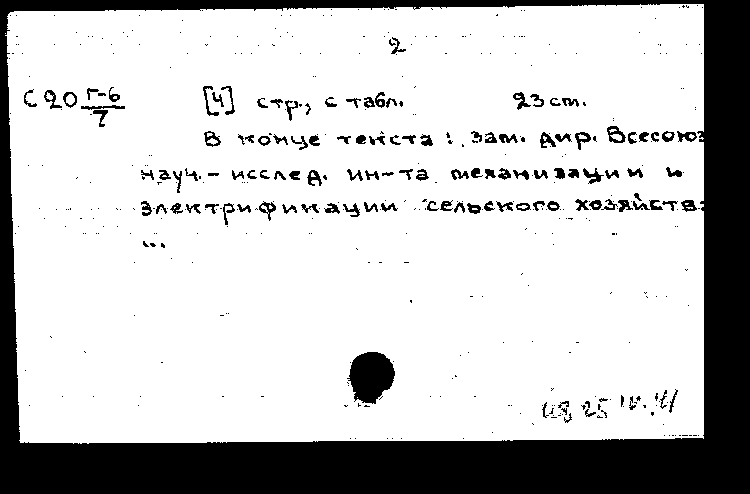 2
С20 Г-6/7 [4] стр., с табл. 23 cm.
В конце текста: зам. дир. Всесоюз
науч.-исслед. ин-та механизации и
электрификации сельского хозяйства
...
25 IV.